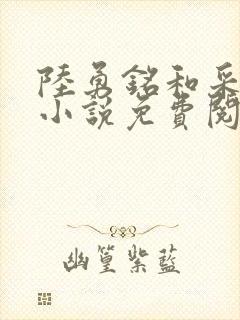 陸勇銘和采
小說免費閱
幽篁紫藍